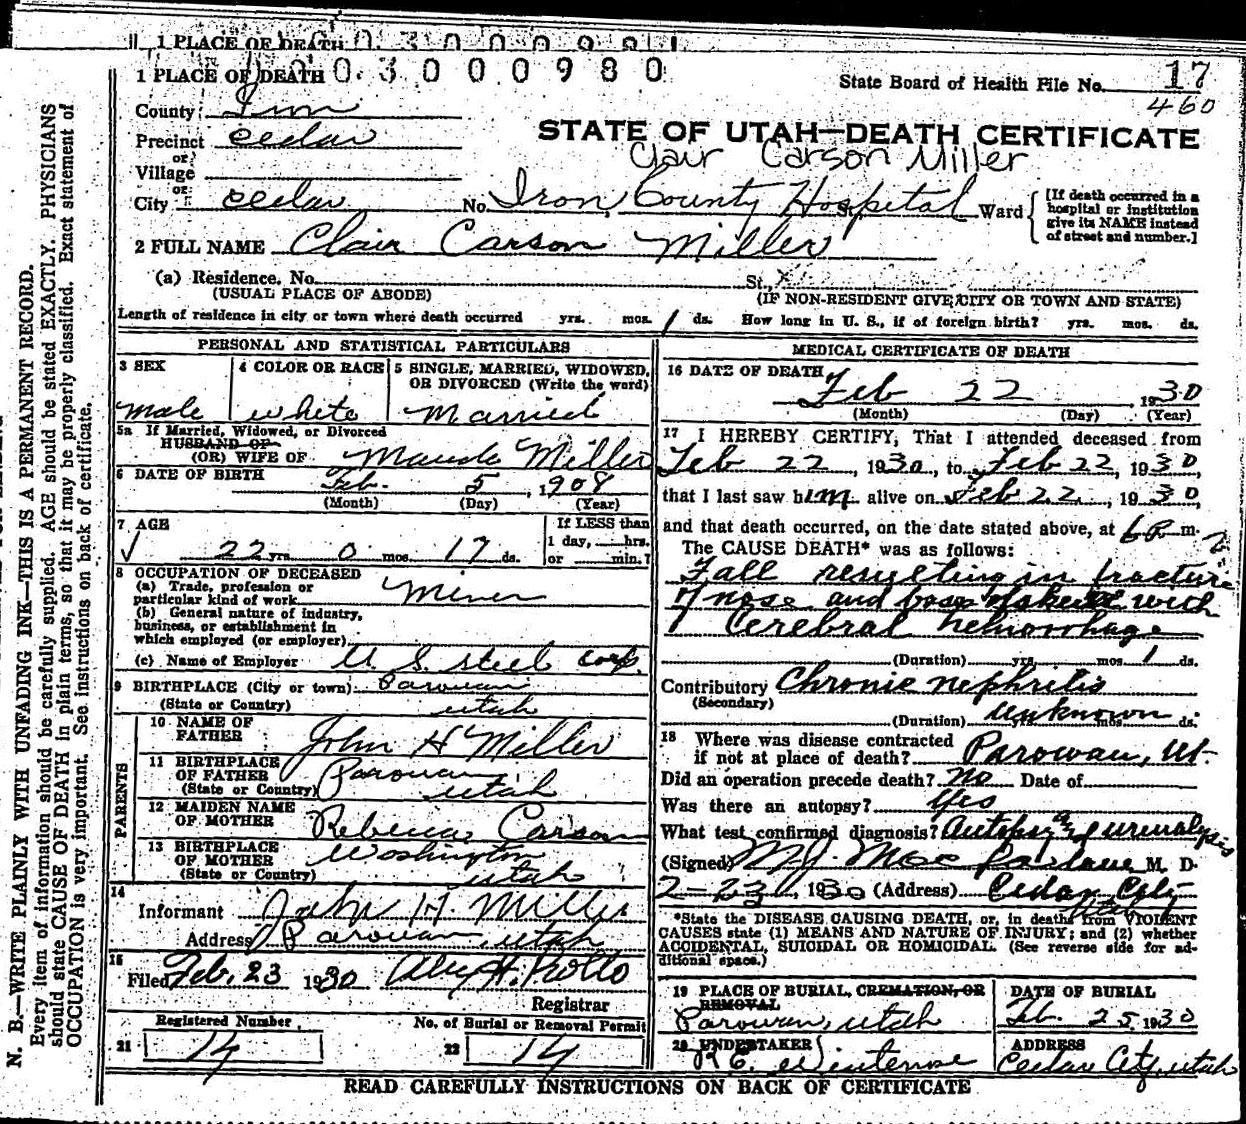 1 PLACE OF DEATH
1 PLACE OF DEATH 0 3 0 0 0 9 8 0
State Board of Health File No. 17
460
County Iron
STATE OF UTAH—DEATH CERTIFICATE
Precinct Cedar
Clair Carson Miller
or
Village
or
City Cedar No. Iron County Hospital St. Ward
[If death occurred in a
hospital or institution
give its NAME instead
of street and number.]
2 FULL NAME Clair Carson Miller
(a) Residence. No. St., X
(USUAL PLACE OF ABODE) (IF NON-RESIDENT GIVE CITY OR TOWN AND STATE)
Length of residence in city or town where death occurred yrs. mos. 1 ds. How long in U. S., if of foreign birth? yrs. mos. ds.
PERSONAL AND STATISTICAL PARTICULARS
3 SEX 4 COLOR OR RACE 5 SINGLE, MARRIED, WIDOWED,
OR DIVORCED (Write the word)
male white Married
5a If Married, Widowed, or Divorced
HUSBAND OF
(OR) WIFE OF Maude Miller
6 DATE OF BIRTH Feb. 5, 1908
(Month) (Day) (Year)
7 AGE If LESS than
22 yrs 0 mos. 17 ds. 1 day, hrs.
or min.?
8 OCCUPATION OF DECEASED
(a) Trade, profession or
particular kind of work Miner
(b) General nature of industry,
business, or establishment in
which employed (or employer)
(c) Name of Employer U. S. Steel Corp.
9 BIRTHPLACE (City or town) Parowan
(State or Country) Utah
PARENTS
10 NAME OF
FATHER John H Miller
11 BIRTHPLACE
OF FATHER Parowan
(State or Country) Utah
12 MAIDEN NAME
OF MOTHER Rebecca Carson
13 BIRTHPLACE
OF MOTHER Washington
(State or Country) Utah
14
Informant John H. Miller
Address Parowan, Utah
15
Filed Feb. 23 1930 Alex H. Rollo
Registrar
Registered Number No. of Burial or Removal Permit
21 14 22 14
MEDICAL CERTIFICATE OF DEATH
16 DATE OF DEATH
Feb 22 1930
(Month) (Day) (Year)
17 I HEREBY CERTIFY, That I attended deceased from
Feb 22, 1930, to Feb 22, 1930,
that I last saw him alive on Feb 22, 1930,
and that death occurred, on the date stated above, at 6 P m.
The CAUSE DEATH* was as follows:
Fall resulting in fracture
of nose and base of skull with
Cerebral hemorrhage
(Duration) yrs. mos. 1 ds.
Contributory Chronic nephritis
(Secondary)
(Duration) unknown mos. ds.
18 Where was disease contracted
if not at place of death? Parowan, Ut.
Did an operation precede death? no Date of
Was there an autopsy? Yes
What test confirmed diagnosis? Autopsy and urinalysis
(Signed) M. J. MacFarlane M. D.
2-23, 1930 (Address) Cedar City
Utah
*State the DISEASE CAUSING DEATH, or, in deaths from VIOLENT
CAUSES state (1) MEANS AND NATURE OF INJURY; and (2) whether
ACCIDENTAL, SUICIDAL OR HOMICIDAL. (See reverse side for ad-
ditional space.)
19 PLACE OF BURIAL, CREMATION, OR
REMOVAL
Parowan, Utah
DATE OF BURIAL
Feb. 25 1930
20 UNDERTAKER
ADDRESS
Cedar City, Utah
READ CAREFULLY INSTRUCTIONS ON BACK OF CERTIFICATE
N. B.—WRITE PLAINLY WITH UNFADING INK—THIS IS A PERMANENT RECORD.
Every item of information should be carefully supplied. AGE should be stated EXACTLY. PHYSICIANS
should state CAUSE OF DEATH in plain terms, so that it may be properly classified. Exact statement of
OCCUPATION is very important. See instructions on back of certificate.